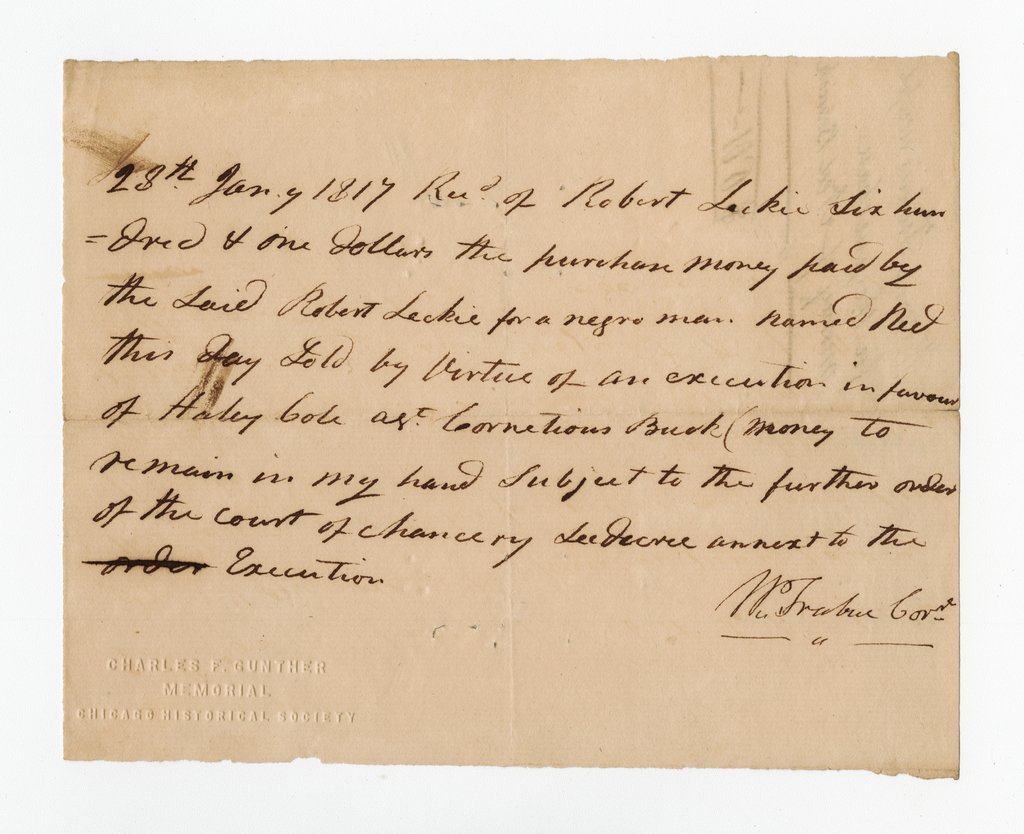 28th Jany 1817 Recd of Robert Leckie Six hun
=dred & one dollars the purchase money paid by
the Said Robert Leckie for a negro man named Ned
this day Sold by Virtue of an execution in favour
of Haley Cole agt. Cornetious Buck (money to
remain in my hand Subject to the further order
of the court of chancery Seedecree annext to the
order Execution
Wm Trabue Corr
CHARLES F. GUNTHER
MEMORIAL
CHICAGO HISTORICAL SOCIETY